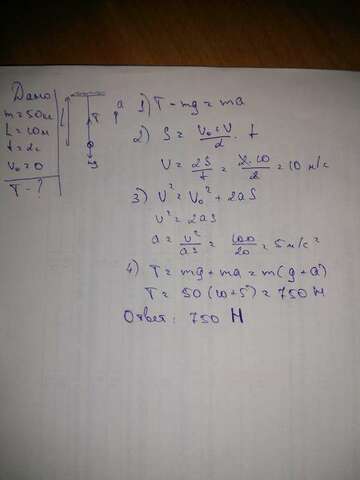 Дано
m = 50кг
L = 10м
t = 2с
V₀ = 0
T - ?
L
T
a
1) T - mg = ma
2) S = V₀ + V / 2 · t
V = 2S / t = 2·10 / 2 = 10 м/с
3) V² = V₀² + 2aS
V² = 2aS
a = V² / 2S = 100 / 20 = 5 м/с²
4) T = mg + ma = m(g + a)
T = 50 (10 + 5) = 750 Н
Ответ: 750 Н